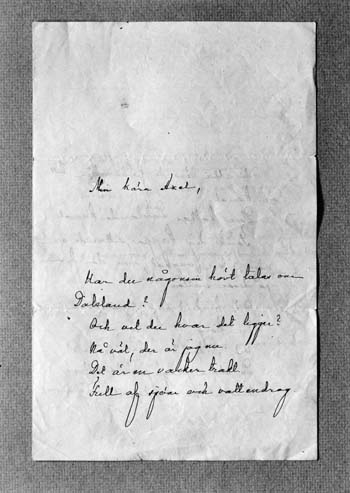 Min kära Axel,
Har du någonsin hört talas om
Dalsland?
Och vet du hvar det ligger?
Nå väl, der är jag nu
Det är en vacker trakt
Full af sjöar och vattendrag